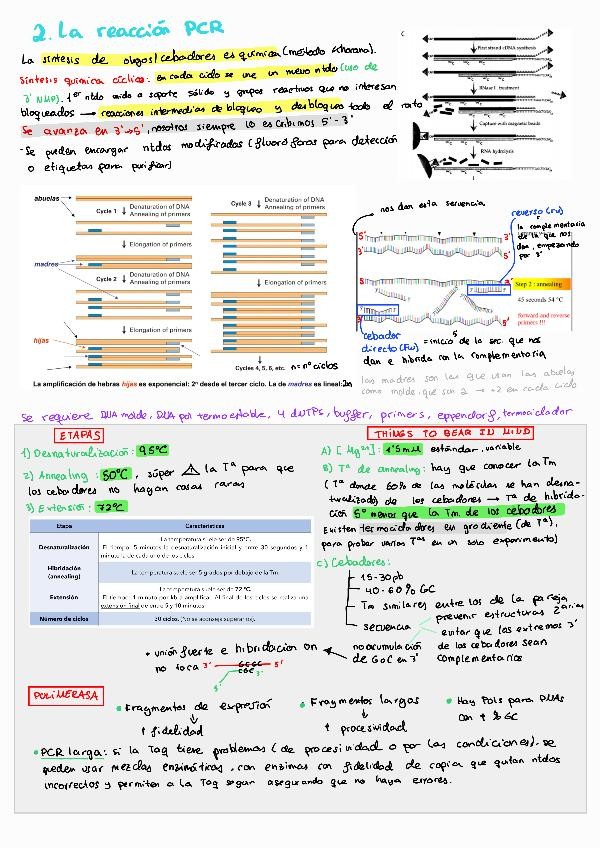 2. La reacción PCR
La síntesis de oligos/cebadores es química (método Khorana).
Síntesis química cíclica: en cada ciclo se une un nuevo ntdo (uso de
3' NMP). 1er ntdo unido a soporte sólido y grupos reactivos que no interesan
bloqueados → reacciones intermedias de bloqueo y desbloqueo todo el rato
Se avanza en 3'→5', nosotros siempre lo escribimos 5'-3'
- Se pueden encargar ntdos modificados (fluoróforos para detección
o etiquetas para purificar)
C
First strand cDNA synthesis
RNase I treatment
Capture with magnetic beads
RNA hydrolysis
abuelas
Cycle 1
Denaturation of DNA
Annealing of primers
Elongation of primers
madres
Cycle 2
Denaturation of DNA
Annealing of primers
Elongation of primers
hijas
Cycle 3
Denaturation of DNA
Annealing of primers
Elongation of primers
Cycles 4, 5, 6, etc.
n = nº ciclos
La amplificación de hebras hijas es exponencial: 2ⁿ desde el tercer ciclo. La de madres es lineal: 2n
nos dan esta secuencia
reverso (rv)
la complementaria
de la que nos
dan, empezando
por 3'
5'
3'
3'
5'
Step 2 : annealing
45 seconds 54 °C
forward and reverse
primers !!!
cebador
directo (Fw) = inicio de la sec. que nos
dan e hibrida con la complementaria
las madres son las que usan las abuelas
como molde, que son 2 → +2 en cada ciclo
Se requiere DNA molde, DNA pol termoestable, 4 dNTPs, buffer, primers, eppendorf, termociclador
ETAPAS
1) Desnaturalización: 95ºC
2) Annealing: 50ºC, súper ⚠ la Tª para que
los cebadores no hagan cosas raras
3) Extensión: 72ºC
Etapa
Características
Desnaturalización
La temperatura suele ser de 95°C.
Hibridación
(annealing)
La temperatura suele ser 5 grados por debajo de la Tm.
Extensión
La temperatura suele ser de 72 °C.
extensión final de entre 5 y 10 minutos
Número de ciclos
30 ciclos. (No se aconseja superarlos).
THINGS TO BEAR IN MIND
A) [Mg²⁺]: 1'5mM estándar, variable
B) Tª de annealing: hay que conocer la Tm
(Tª donde 50% de las moléculas se han desna-
turalizado) de los cebadores → Tª de hibrida-
ción 5º menos que la Tm de los cebadores
Existen termocicladores en gradiente (de Tª),
para probar varias Tªs en un solo experimento)
c) Cebadores:
15-30pb
40-60% GC
Tm similares entre los de la pareja
secuencia
prevenir estructuras 2arias
evitar que los extremos 3'
de los cebadores sean
complementarios
no acumulación
de G o C en 3'
* unión fuerte e hibridación en
no toca
3'
GCGC
CGC
5'
3'
5'
POLIMERASA
• Fragmentos de expresión
↓
↑ fidelidad
• Fragmentos largos
↓
↑ procesividad
• Hay Pols para DNAs
con ↑ % GC
• PCR larga: si la Taq tiene problemas (de procesividad o por las condiciones), se
pueden usar mezclas enzimáticas, con enzimas con fidelidad de copia que quitan ntdos
incorrectos y permiten a la Taq seguir asegurando que no haya errores.